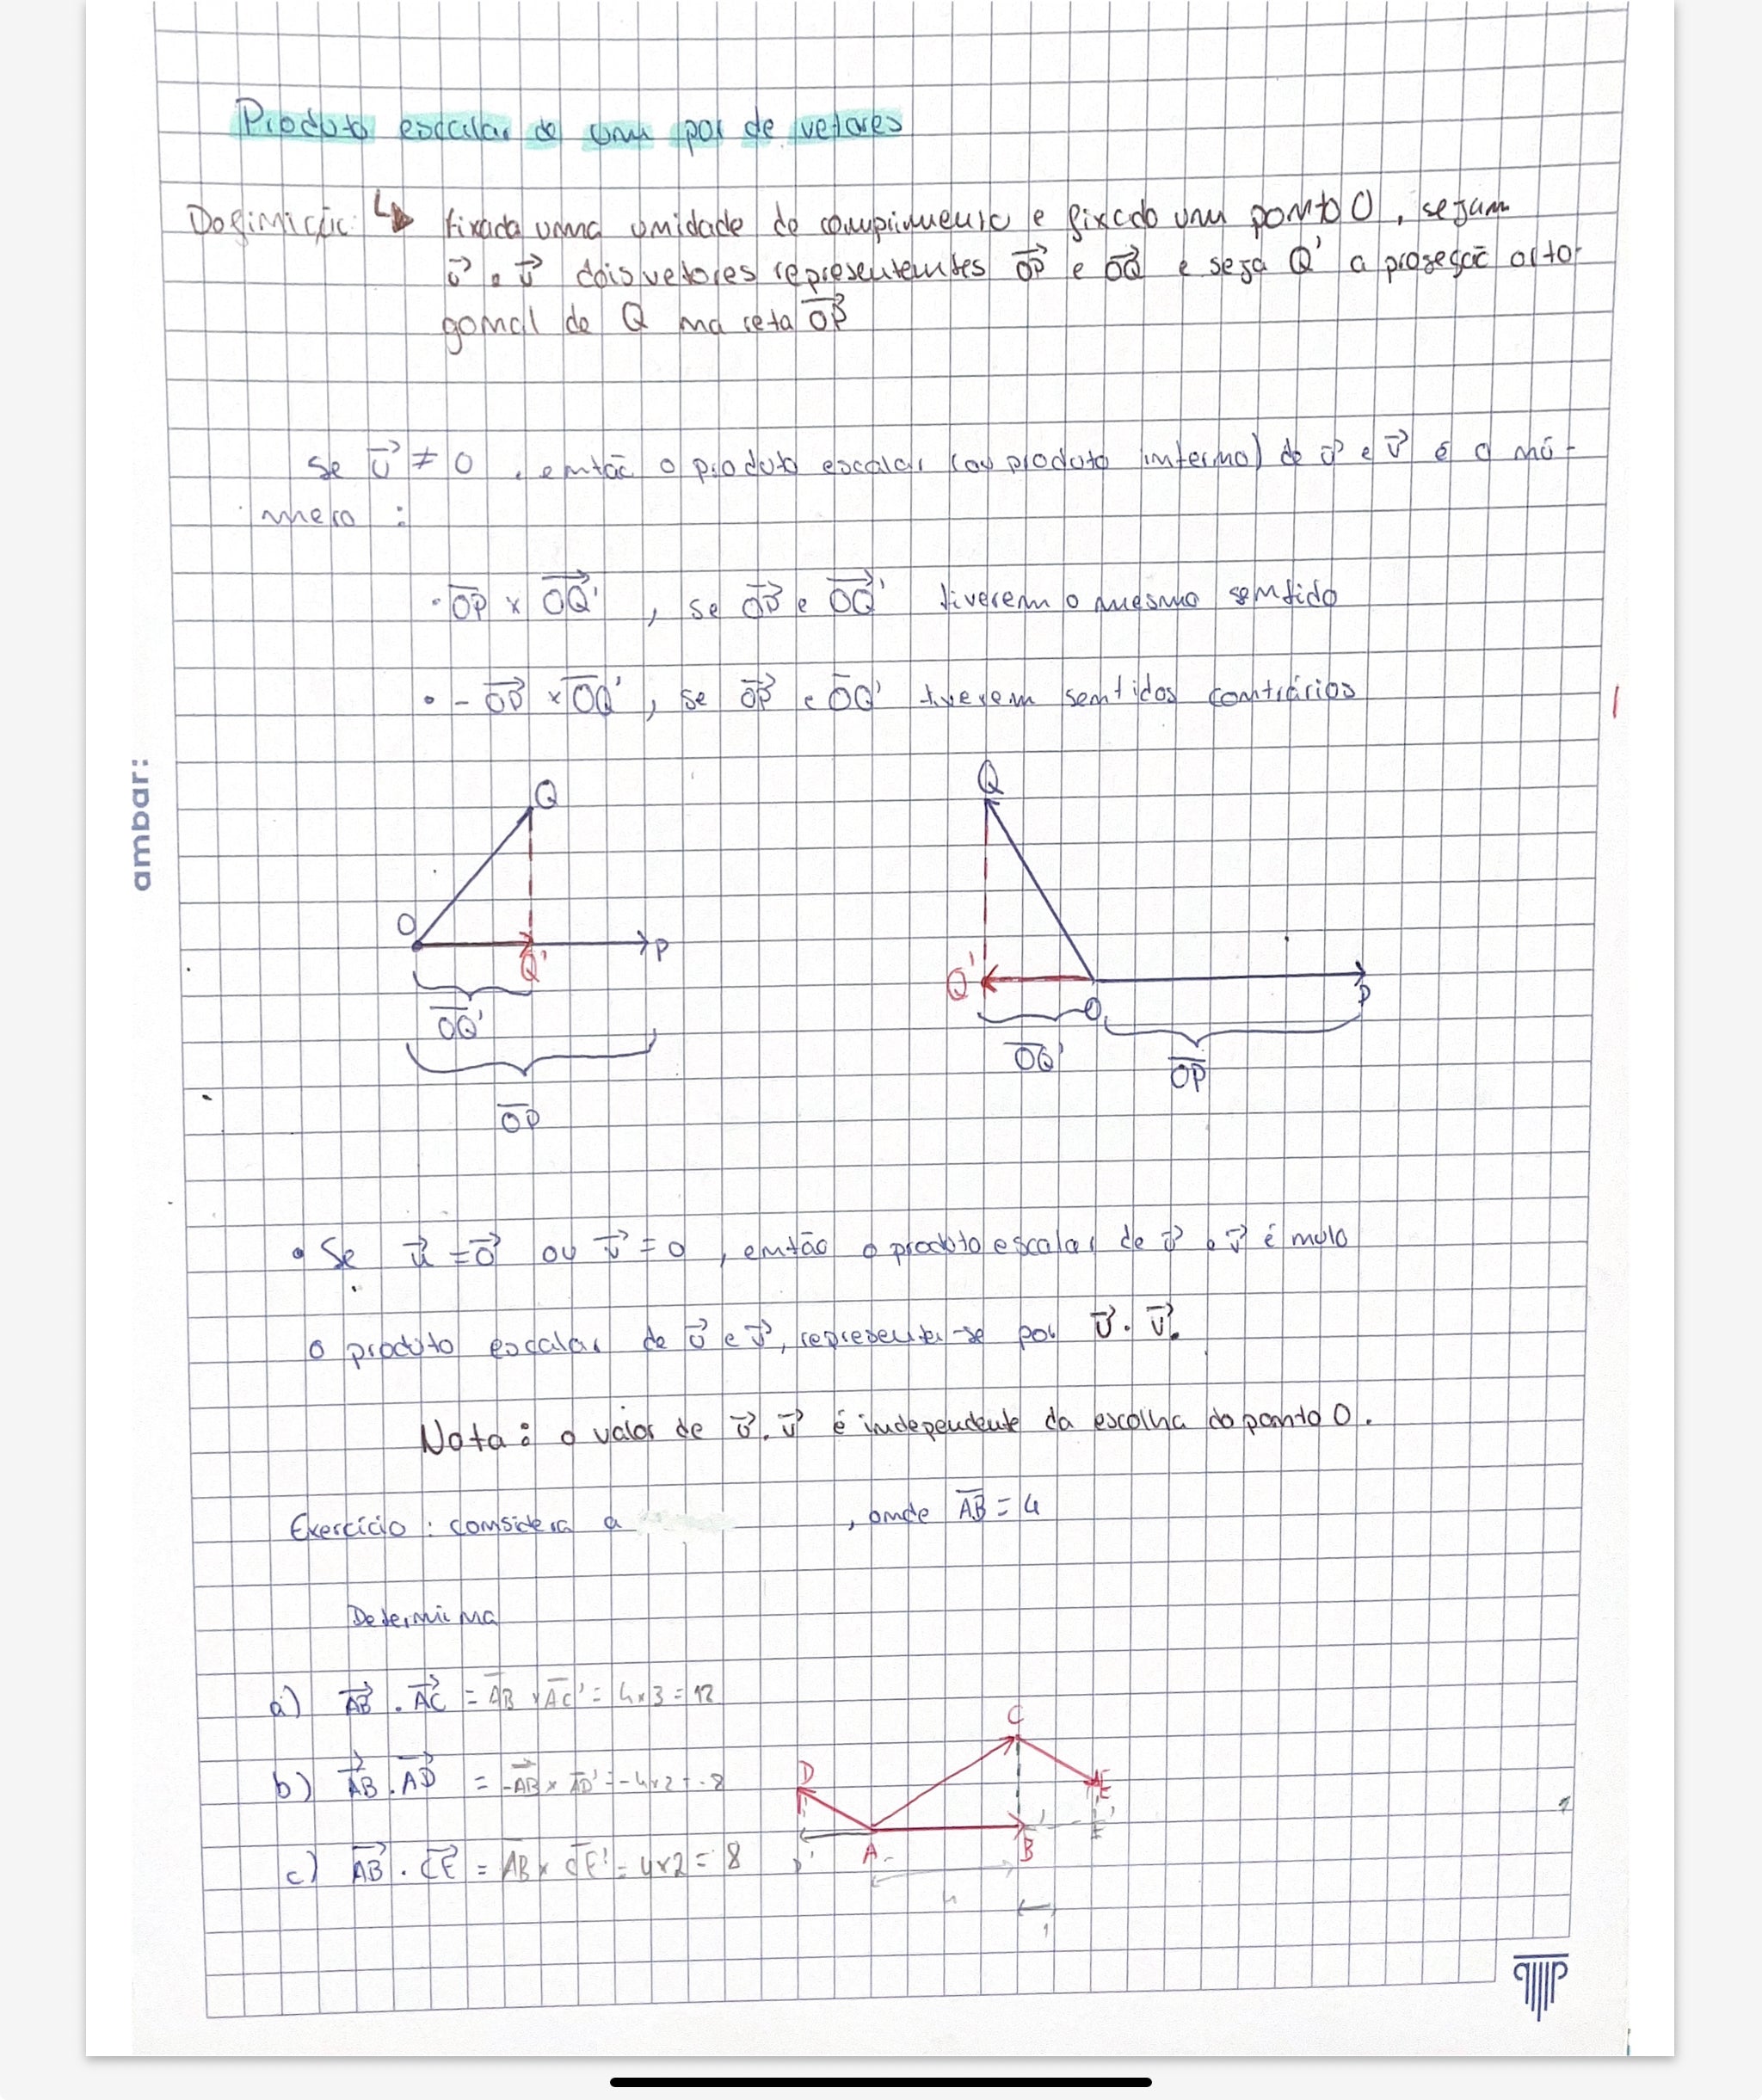 Produto escalar de um par de vetores
Definição: ↳ Fixada uma unidade de comprimento e fixado um ponto O, sejam
u⃗ e v⃗ dois vetores representantes OP⃗ e OQ⃗ e seja Q' a projeção orto-
gonal de Q na reta OP⃗
Se u⃗ ≠ 0, então o produto escalar (ou produto interno) de u⃗ e v⃗ é o nú-
mero:
· O̅P̅ × OQ'⃗, se OP⃗ e OQ'⃗ tiverem o mesmo sentido
• - OP⃗ × O̅Q̅', se OP⃗ e O̅Q' tiverem sentidos contrários
ambar:
Q
O
Q'
P
O̅Q̅'
O̅P̅
Q
Q'
O
P
O̅Q̅'
O̅P̅
• Se u⃗ = 0⃗ ou v⃗ = 0, então o produto escalar de u⃗ e v⃗ é nulo
O produto escalar de u⃗ e v⃗, representa-se por u⃗ . v⃗.
Nota: o valor de u⃗ . v⃗ é independente da escolha do ponto O.
Exercício: considera a , onde A̅B̅ = 4
Determina
a) AB⃗ . AC⃗ = A̅B̅ × A̅C̅' = 4×3 = 12
b) AB⃗ . AD⃗ = -AB⃗ × A̅D̅' = -4×2 = -8
c) AB⃗ . CE⃗ = A̅B̅ × C̅E̅' = 4×2 = 8
C
D
E
A
B
E'
D'
4
1